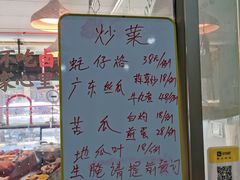 炒菜
蚝仔烙 38/份
广东丝瓜 煎蛋炒 18/份
牛丸煮 48/份
苦瓜 白灼 18/份
煎蛋 28/份
地瓜叶 18/份
生腌请提前预订